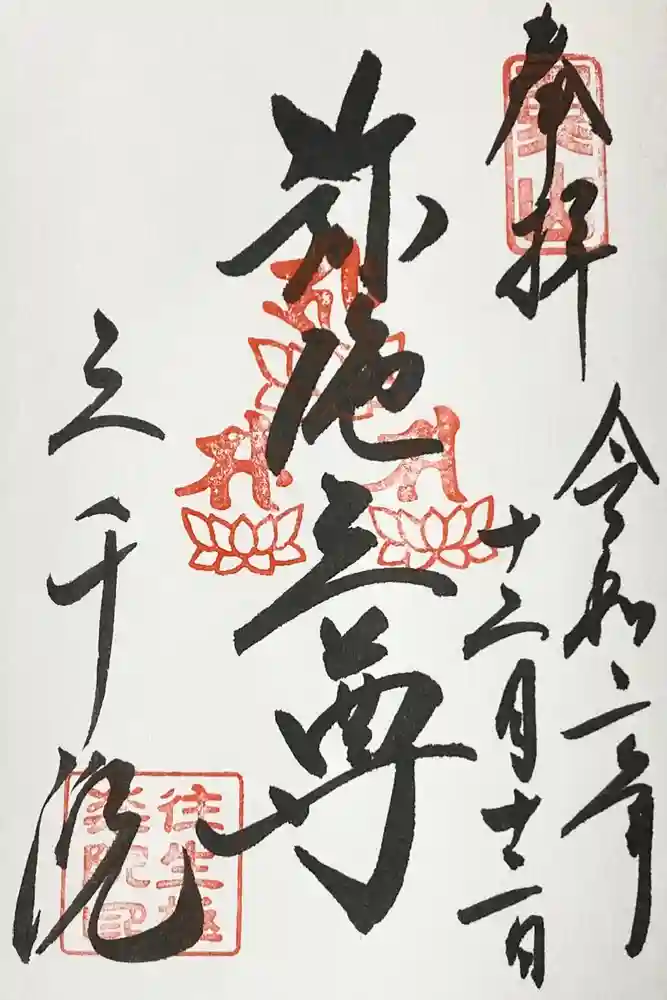 奉拝
魚山
令和二年
十二月十二日
弥陀三尊
三千院
往生極
楽院印